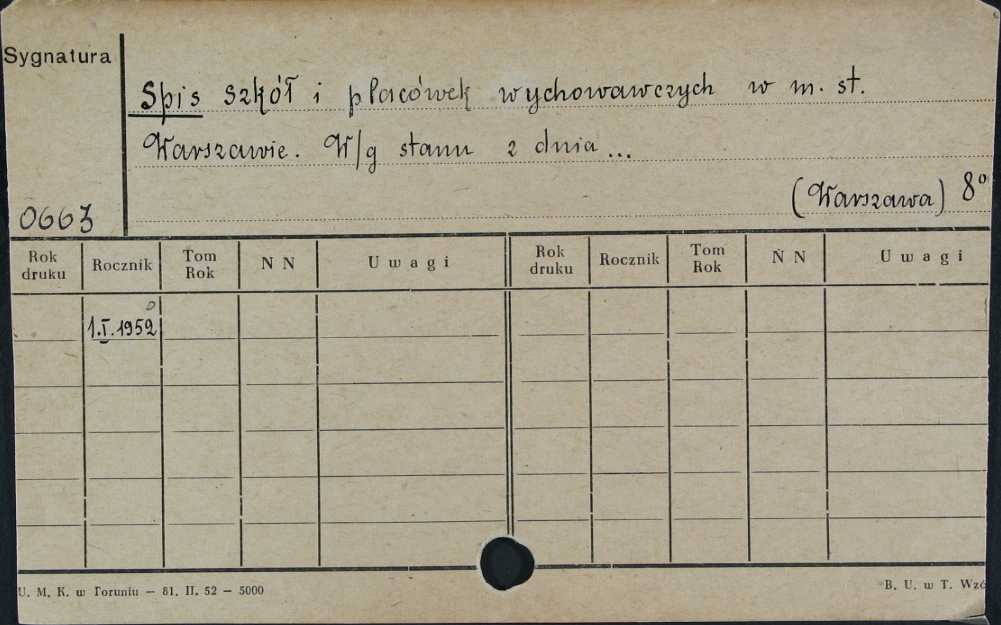 Sygnatura
Spis szkół i placówek wychowawczych w m. st.
Warszawie. W/g stanu z dnia...
(Warszawa) 8°
0663
Rok druku Rocznik Tom Rok N N Uwagi Rok druku Rocznik Tom Rok N N Uwagi
1.I.1952
U. M. K. w Toruniu — 81. II. 52 — 5000 B. U. w T.